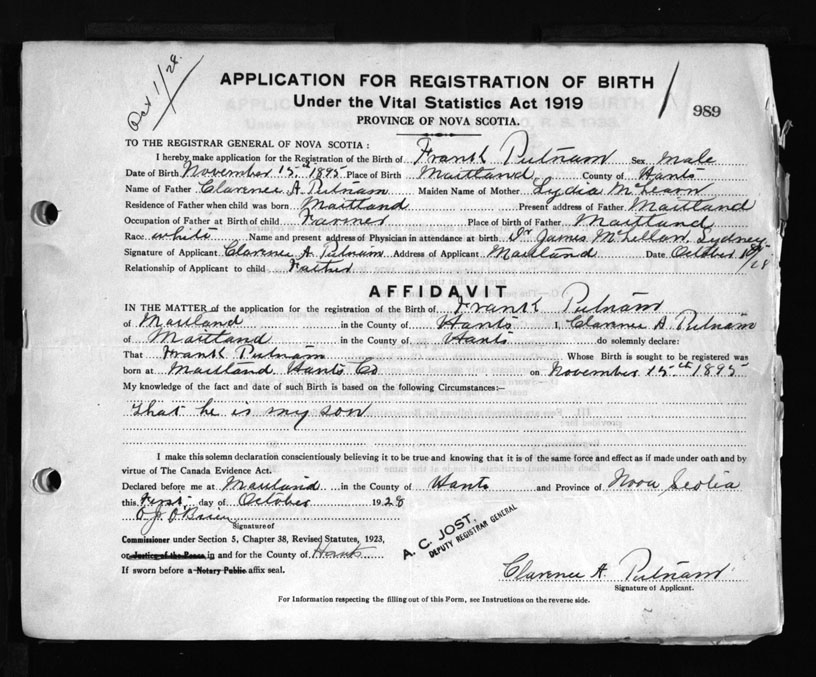 Oct 1/28.
APPLICATION FOR REGISTRATION OF BIRTH
Under the Vital Statistics Act 1919
PROVINCE OF NOVA SCOTIA.
989
TO THE REGISTRAR GENERAL OF NOVA SCOTIA:
I hereby make application for the Registration of the Birth of Frank Putnam Sex Male
Date of Birth November 15th 1895 Place of Birth Maitland County of Hants
Name of Father Clarence A. Putnam Maiden Name of Mother Lydia McLearn
Residence of Father when child was born Maitland Present address of Father Maitland
Occupation of Father at Birth of child Farmer Place of birth of Father Maitland
Race white Name and present address of Physician in attendance at birth Dr James McLellan, Sydney
Signature of Applicant Clarence A. Putnam Address of Applicant Maitland Date October 1st/28
Relationship of Applicant to child Father
AFFIDAVIT
IN THE MATTER of the application for the registration of the Birth of Frank Putnam
of Maitland in the County of Hants I, Clarence A Putnam
of Maitland in the County of Hants do solemnly declare:
That Frank Putnam Whose Birth is sought to be registered was
born at Maitland Hants Co on November 15th 1895
My knowledge of the fact and date of such Birth is based on the following Circumstances:—
That he is my son
I make this solemn declaration conscientiously believing it to be true and knowing that it is of the same force and effect as if made under oath and by
virtue of The Canada Evidence Act.
Declared before me at Maitland in the County of Hants and Province of Nova Scotia
this First day of October 1928
O.J. O'Brien
Signature of
Commissioner under Section 5, Chapter 38, Revised Statutes, 1923,
or Justice of the Peace in and for the County of Hants
If sworn before a Notary Public affix seal.
A. C. JOST,
DEPUTY REGISTRAR GENERAL
Clarence A. Putnam
Signature of Applicant.
For Information respecting the filling out of this Form, see Instructions on the reverse side.